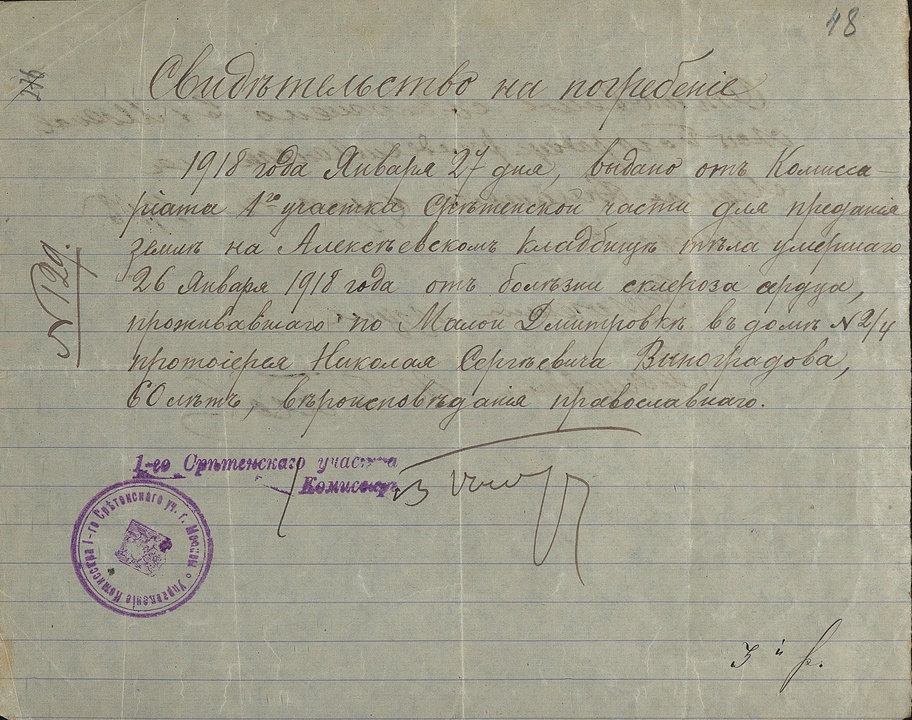 48
Свидѣтельство на погребеніе
1918 года Января 27 дня, выдано отъ Комисса-
ріата 1го участка Срѣтенской части для преданія
землѣ на Алексѣевскомъ кладбищѣ тѣла умершаго
26 Января 1918 года отъ болѣзни склероза сердца,
проживавшаго по Малой Дмитровкѣ въ домѣ № 2/4
протоіерея Николая Сергѣевича Виноградова,
60 лѣтъ, вѣроисповѣданія православнаго.
№ 129.
1-го Срѣтенскаго участка
Комиссаръ
Управленіе Комиссара 1-го Срѣтенскаго уч. г. Москвы